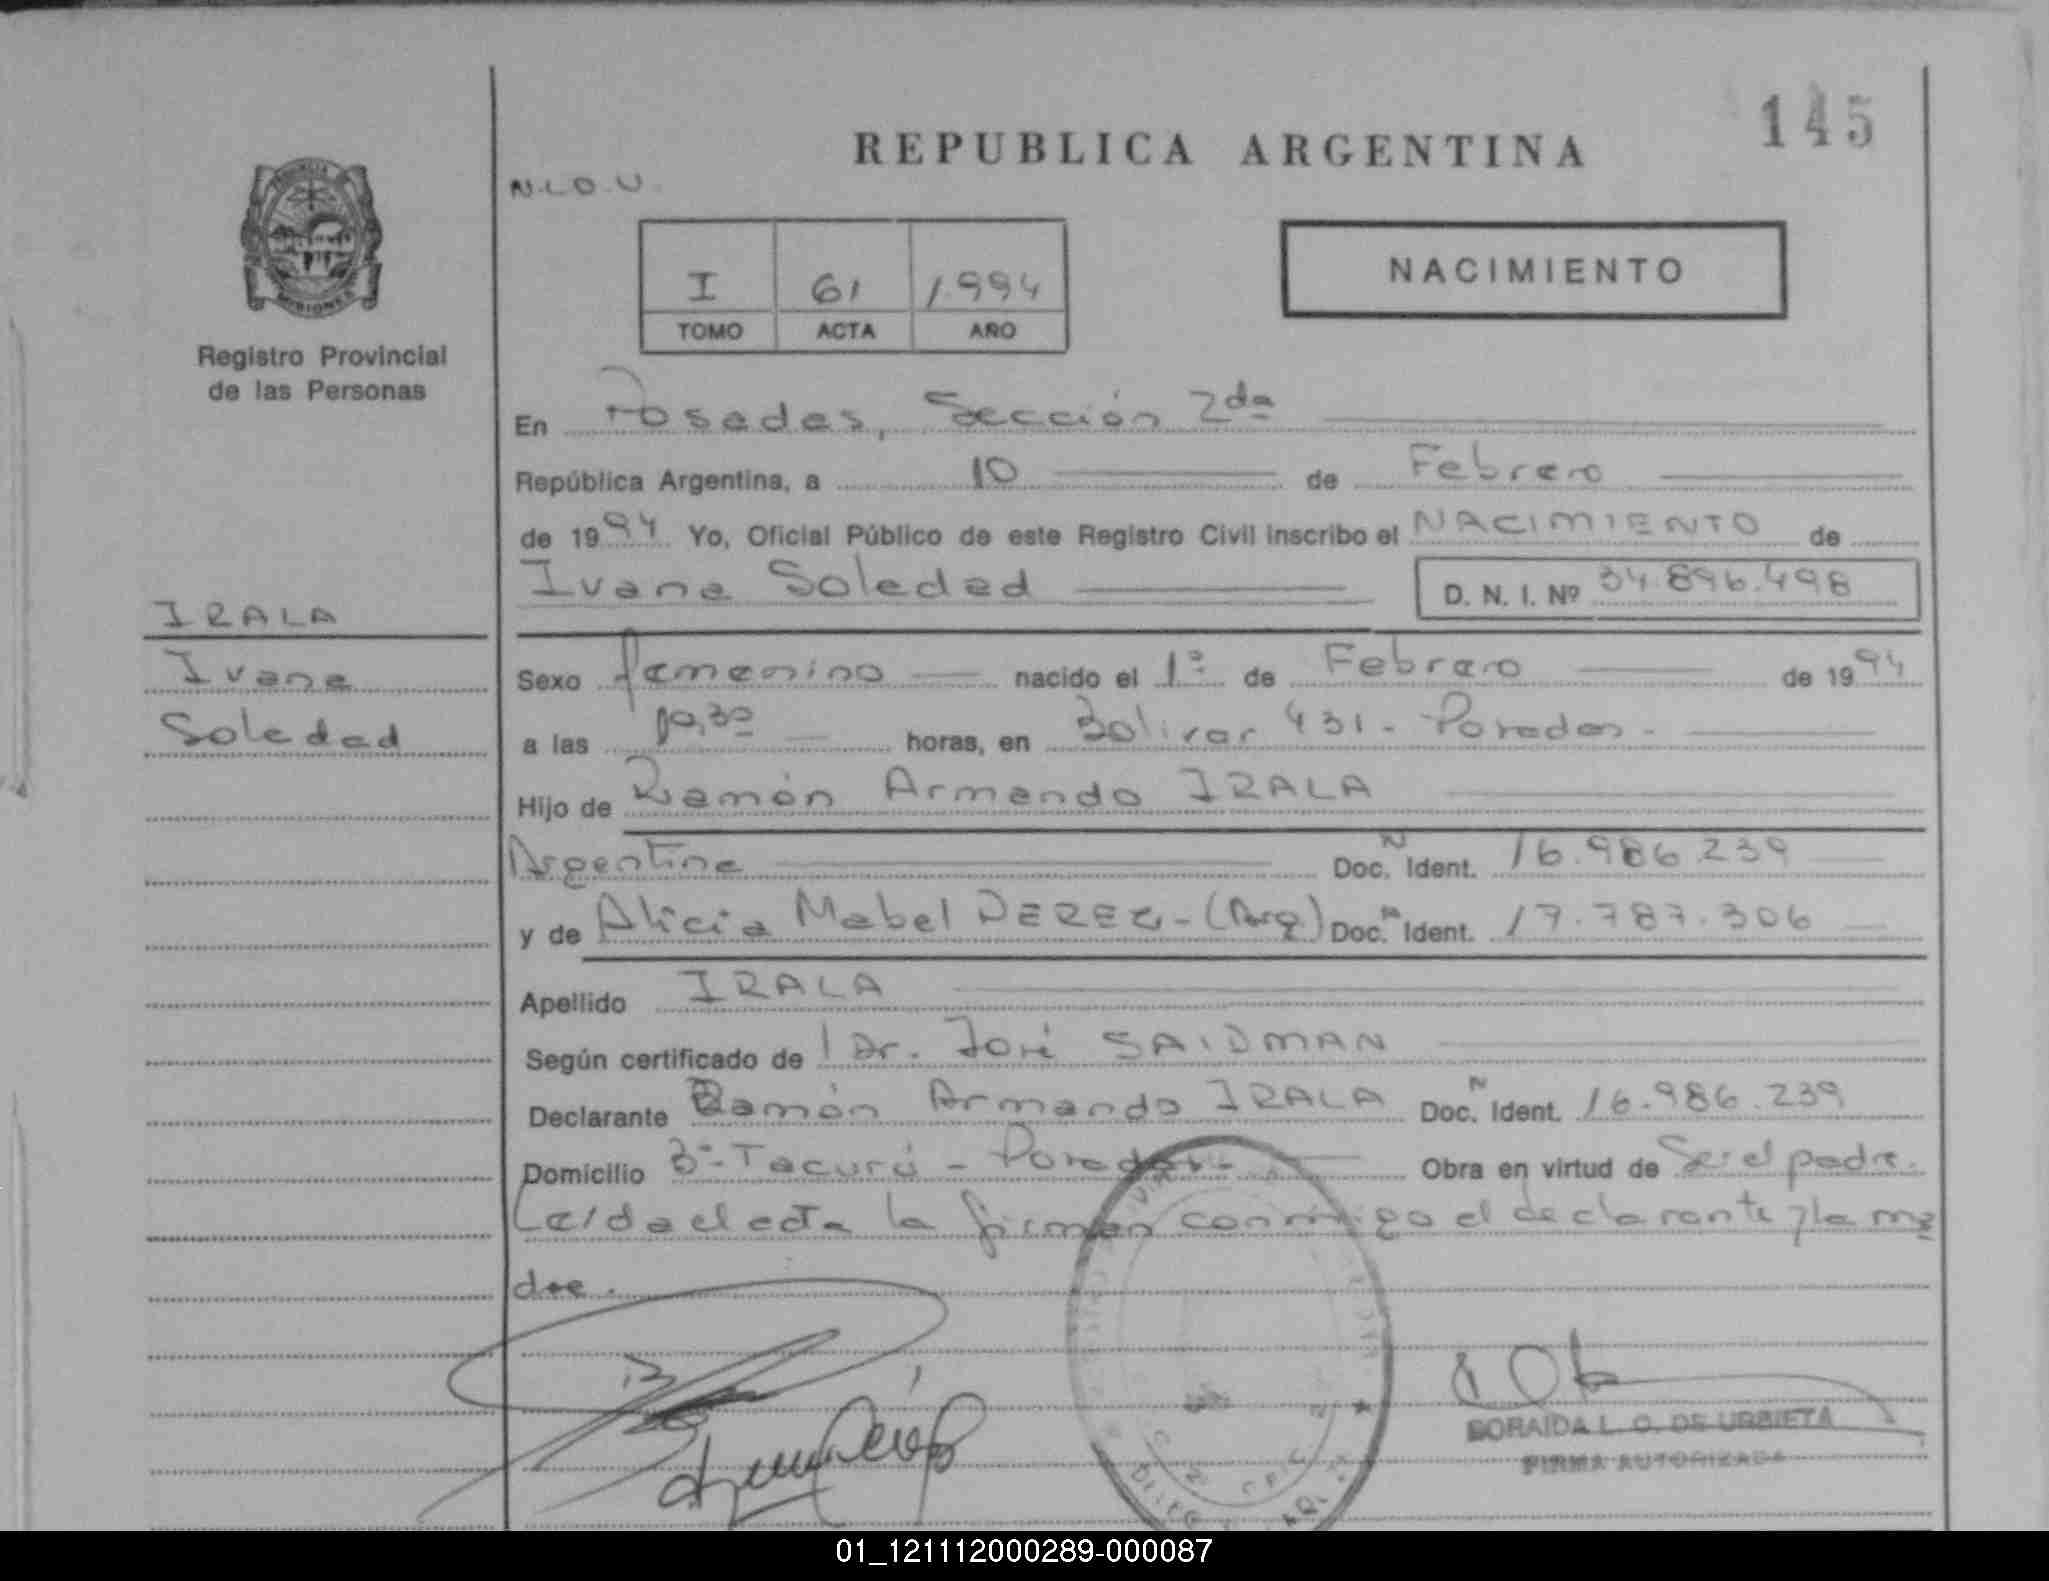 145
REPUBLICA ARGENTINA
N.L.O.U.
PROVINCIA
MISIONES
NACIMIENTO
I 61 1994
TOMO ACTA AÑO
Registro Provincial
de las Personas
En Posadas, Sección 2da
República Argentina, a 10 de Febrero
de 1994 Yo, Oficial Público de este Registro Civil inscribo el NACIMIENTO de
Ivana Soledad D. N. I. Nº 34.896.498
IRALA
Ivana
Soledad
Sexo femenino nacido el 1º de Febrero de 1994
a las 10,30 horas, en Bolivar 431 - Posadas -
Hijo de Ramón Armando IRALA
Argentina Doc. N Ident. 16.986.239
y de Alicia Mabel (Arg) Doc. N Ident. 17.787.306
Apellido IRALA
Según certificado de Dr. José SAIDMAN
Declarante Ramón Armando IRALA Doc. N Ident. 16.986.239
Domicilio Bº Tacurú - Posadas - Obra en virtud de Ser el padre.
Leída el acta la firman conmigo el declarante y la ma
dre.
SORAIDA L. O. DE URBIETA
FIRMA AUTORIZADA
01_121112000289-000087